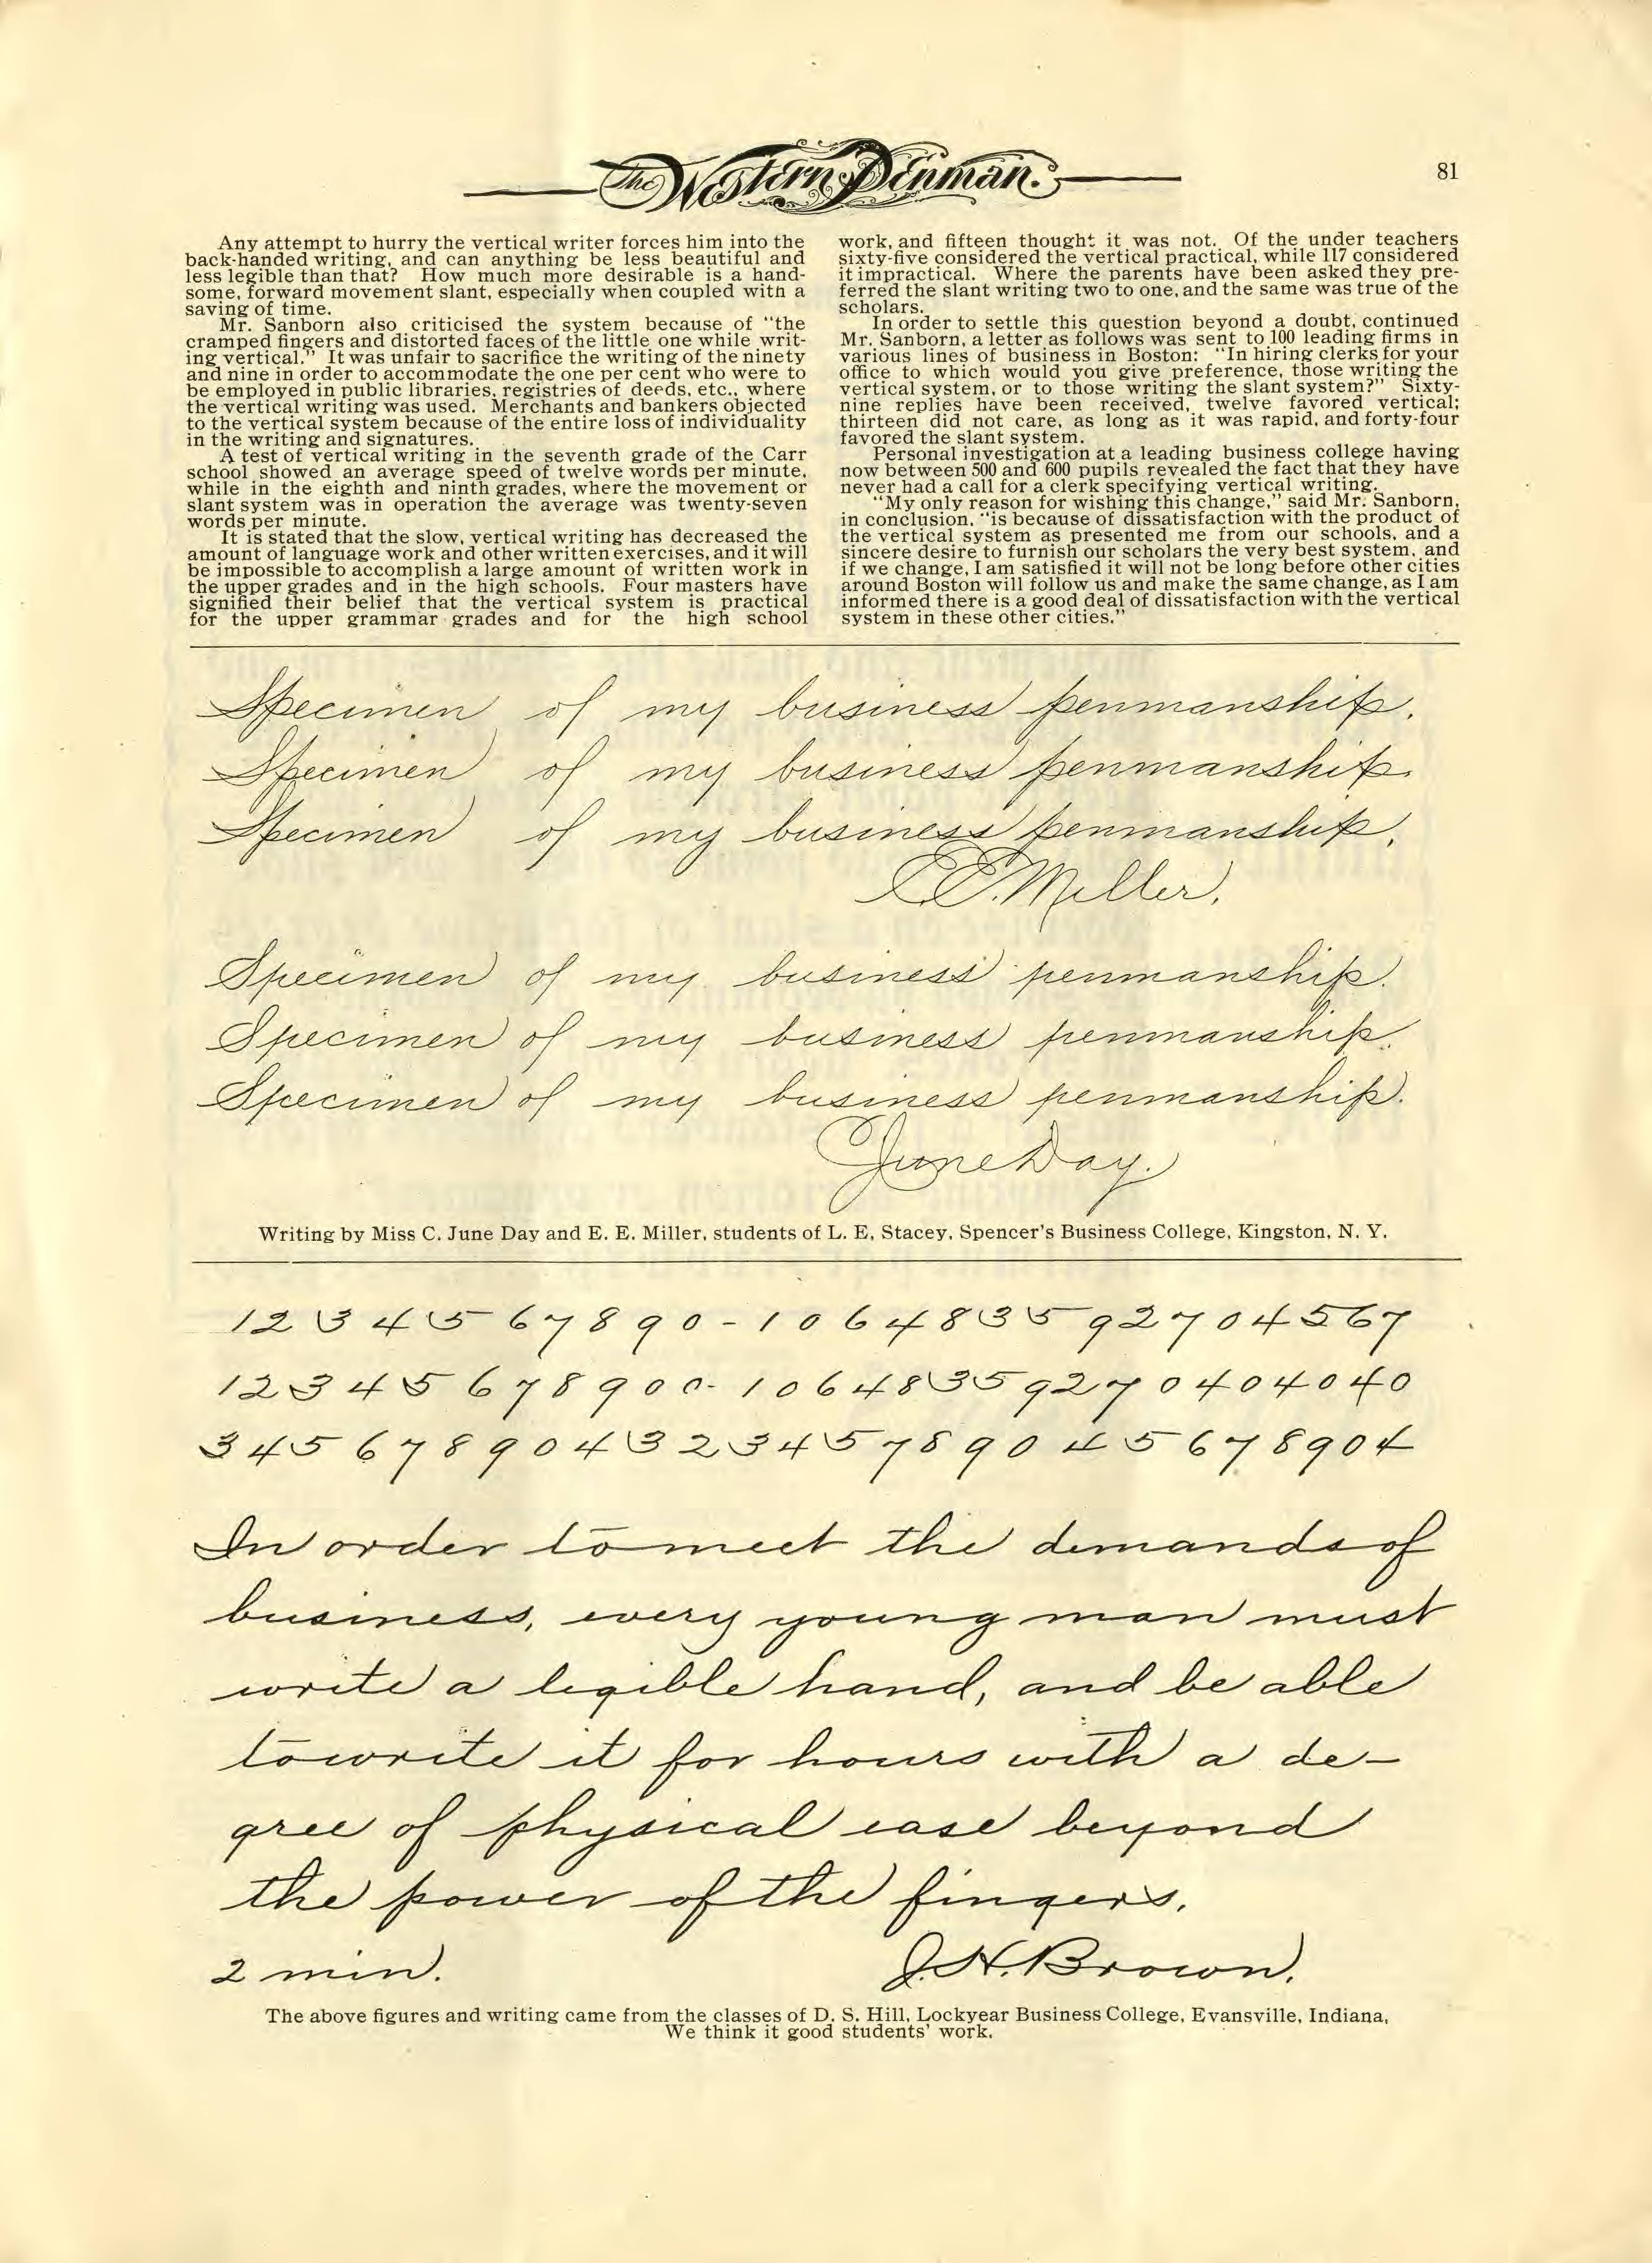 The Western Penman.
81
Any attempt to hurry the vertical writer forces him into the
back-handed writing, and can anything be less beautiful and
less legible than that? How much more desirable is a hand-
some, forward movement slant, especially when coupled with a
saving of time.
Mr. Sanborn also criticised the system because of "the
cramped fingers and distorted faces of the little one while writ-
ing vertical." It was unfair to sacrifice the writing of the ninety
and nine in order to accommodate the one per cent who were to
be employed in public libraries, registries of deeds, etc., where
the vertical writing was used. Merchants and bankers objected
to the vertical system because of the entire loss of individuality
in the writing and signatures.
A test of vertical writing in the seventh grade of the Carr
school showed an average speed of twelve words per minute,
while in the eighth and ninth grades, where the movement or
slant system was in operation the average was twenty-seven
words per minute.
It is stated that the slow, vertical writing has decreased the
amount of language work and other written exercises, and it will
be impossible to accomplish a large amount of written work in
the upper grades and in the high schools. Four masters have
signified their belief that the vertical system is practical
for the upper grammar grades and for the high school
work, and fifteen thought it was not. Of the under teachers
sixty-five considered the vertical practical, while 117 considered
it impractical. Where the parents have been asked they pre-
ferred the slant writing two to one, and the same was true of the
scholars.
In order to settle this question beyond a doubt, continued
Mr. Sanborn, a letter as follows was sent to 100 leading firms in
various lines of business in Boston: "In hiring clerks for your
office to which would you give preference, those writing the
vertical system, or to those writing the slant system?" Sixty-
nine replies have been received, twelve favored vertical;
thirteen did not care, as long as it was rapid, and forty-four
favored the slant system.
Personal investigation at a leading business college having
now between 500 and 600 pupils revealed the fact that they have
never had a call for a clerk specifying vertical writing.
"My only reason for wishing this change," said Mr. Sanborn,
in conclusion, "is because of dissatisfaction with the product of
the vertical system as presented me from our schools, and a
sincere desire to furnish our scholars the very best system, and
if we change, I am satisfied it will not be long before other cities
around Boston will follow us and make the same change, as I am
informed there is a good deal of dissatisfaction with the vertical
system in these other cities."
Specimen of my business penmanship.
Specimen of my business penmanship.
Specimen of my business penmanship.
E.E. Miller.
Specimen of my business penmanship.
Specimen of my business penmanship.
Specimen of my business penmanship.
C June Day.
Writing by Miss C. June Day and E. E. Miller, students of L. E. Stacey, Spencer's Business College, Kingston, N. Y.
1 2 3 4 5 6 7 8 9 0 - 1 0 6 4 8 3 5 9 2 7 0 4 5 6 7
1 2 3 4 5 6 7 8 9 0 0 - 1 0 6 4 8 3 5 9 2 7 0 4 0 4 0 4 0
3 4 5 6 7 8 9 0 4 3 2 3 4 5 7 8 9 0 4 5 6 7 8 9 0 4
In order to meet the demands of
business, every young man must
write a legible hand, and be able
to write it for hours with a de-
gree of physical ease beyond
the power of the fingers.
2 min. J.H. Brown.
The above figures and writing came from the classes of D. S. Hill, Lockyear Business College, Evansville, Indiana.
We think it good students' work.